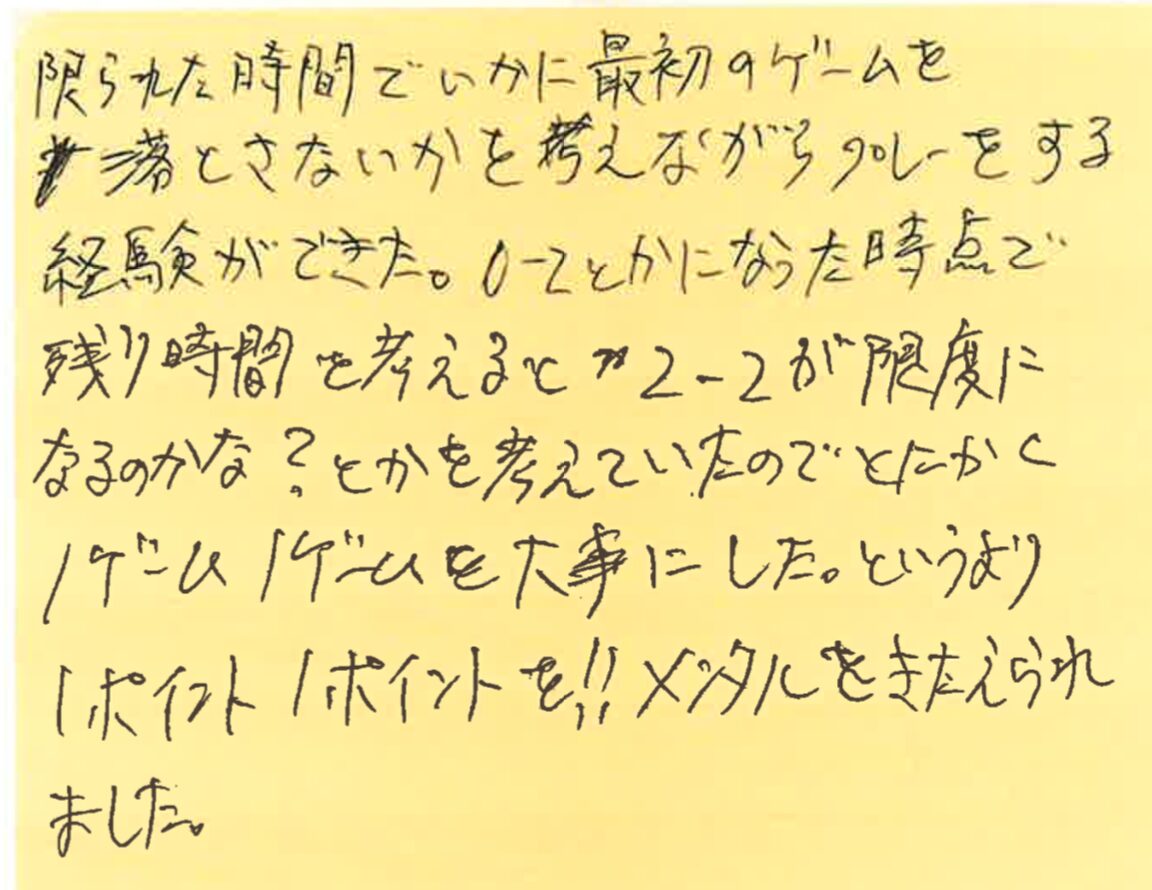 限られた時間でいかに最初のゲームを
落とさないかを考えながらプレーをする
経験ができた。0-2とかになった時点で
残り時間を考えると2-2が限度に
なるのかな?とかを考えていたのでとにかく
1ゲーム1ゲームを大事にした。というより
1ポイント1ポイントを!!メンタルをきたえられ
ました。